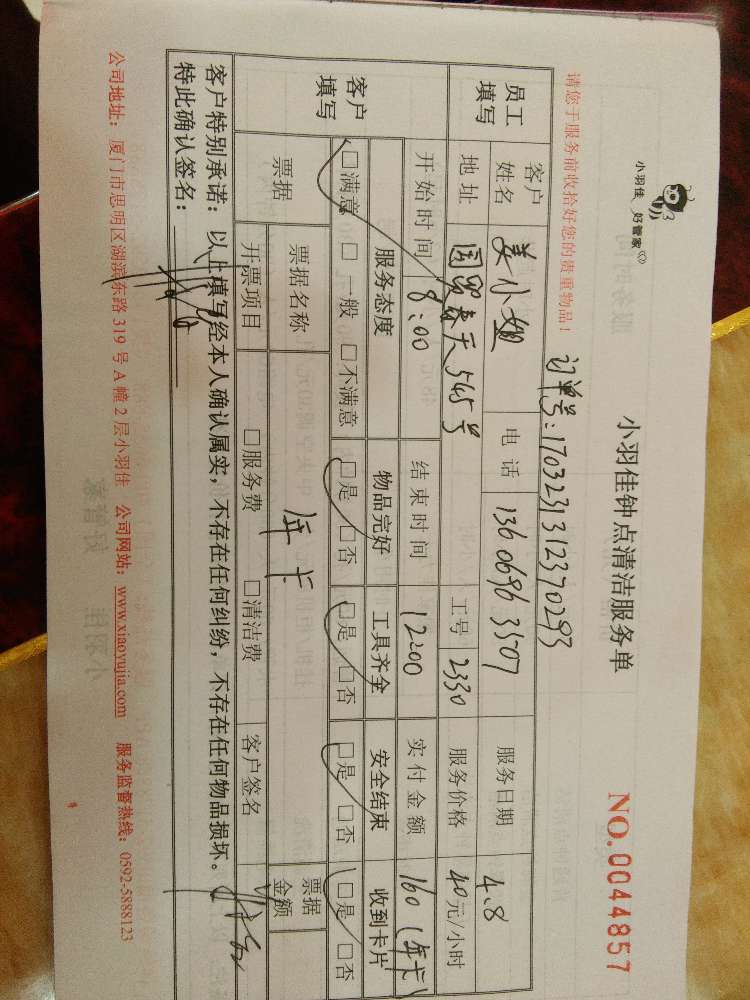 小羽佳 好管家
小羽佳钟点清洁服务单
NO.0044857
请您于服务前收拾好您的贵重物品！
订单号：1703231312370293
员工填写
客户姓名 姜小姐 电话 13606963507 服务日期 4.8
地址 国贸春天545号 工号 2330 服务价格 40元/小时
开始时间 8:00 结束时间 12:00 实付金额 160（年卡）
客户填写
服务态度 物品完好 工具齐全 安全结束 收到卡片
□满意 □一般 □不满意 □是 □否 □是 □否 □是 □否 □是 □否
票据 票据名称 年卡 票据金额
开票项目 □服务费 □清洁费 客户签名
客户特别承诺：以上填写经本人确认属实，不存在任何纠纷，不存在任何物品损坏。
特此确认签名：
公司地址：厦门市思明区湖滨东路 319 号 A 幢 2 层小羽佳 公司网站：www.xiaoyujia.com 服务监督热线：0592-5888123